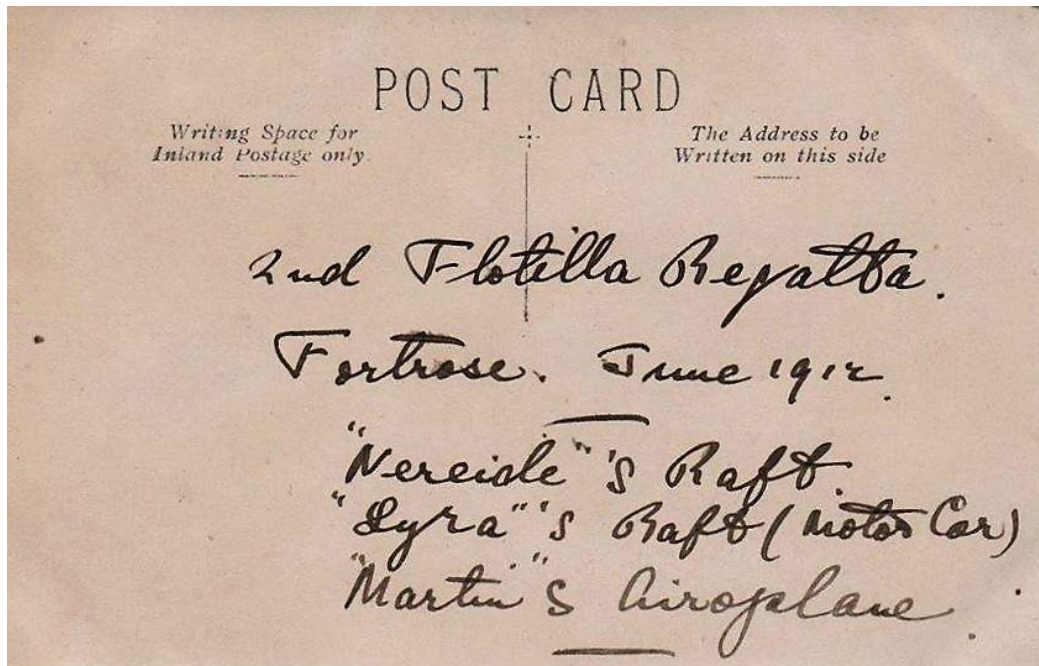 POST CARD
Writing Space for
Inland Postage only.
The Address to be
Written on this side
2nd Flotilla Regatta.
Fortrose. June 1912.
"Nereide"'s Raft.
"Lyra"'s Raft (Motor Car)
"Martin"'s Airoplane